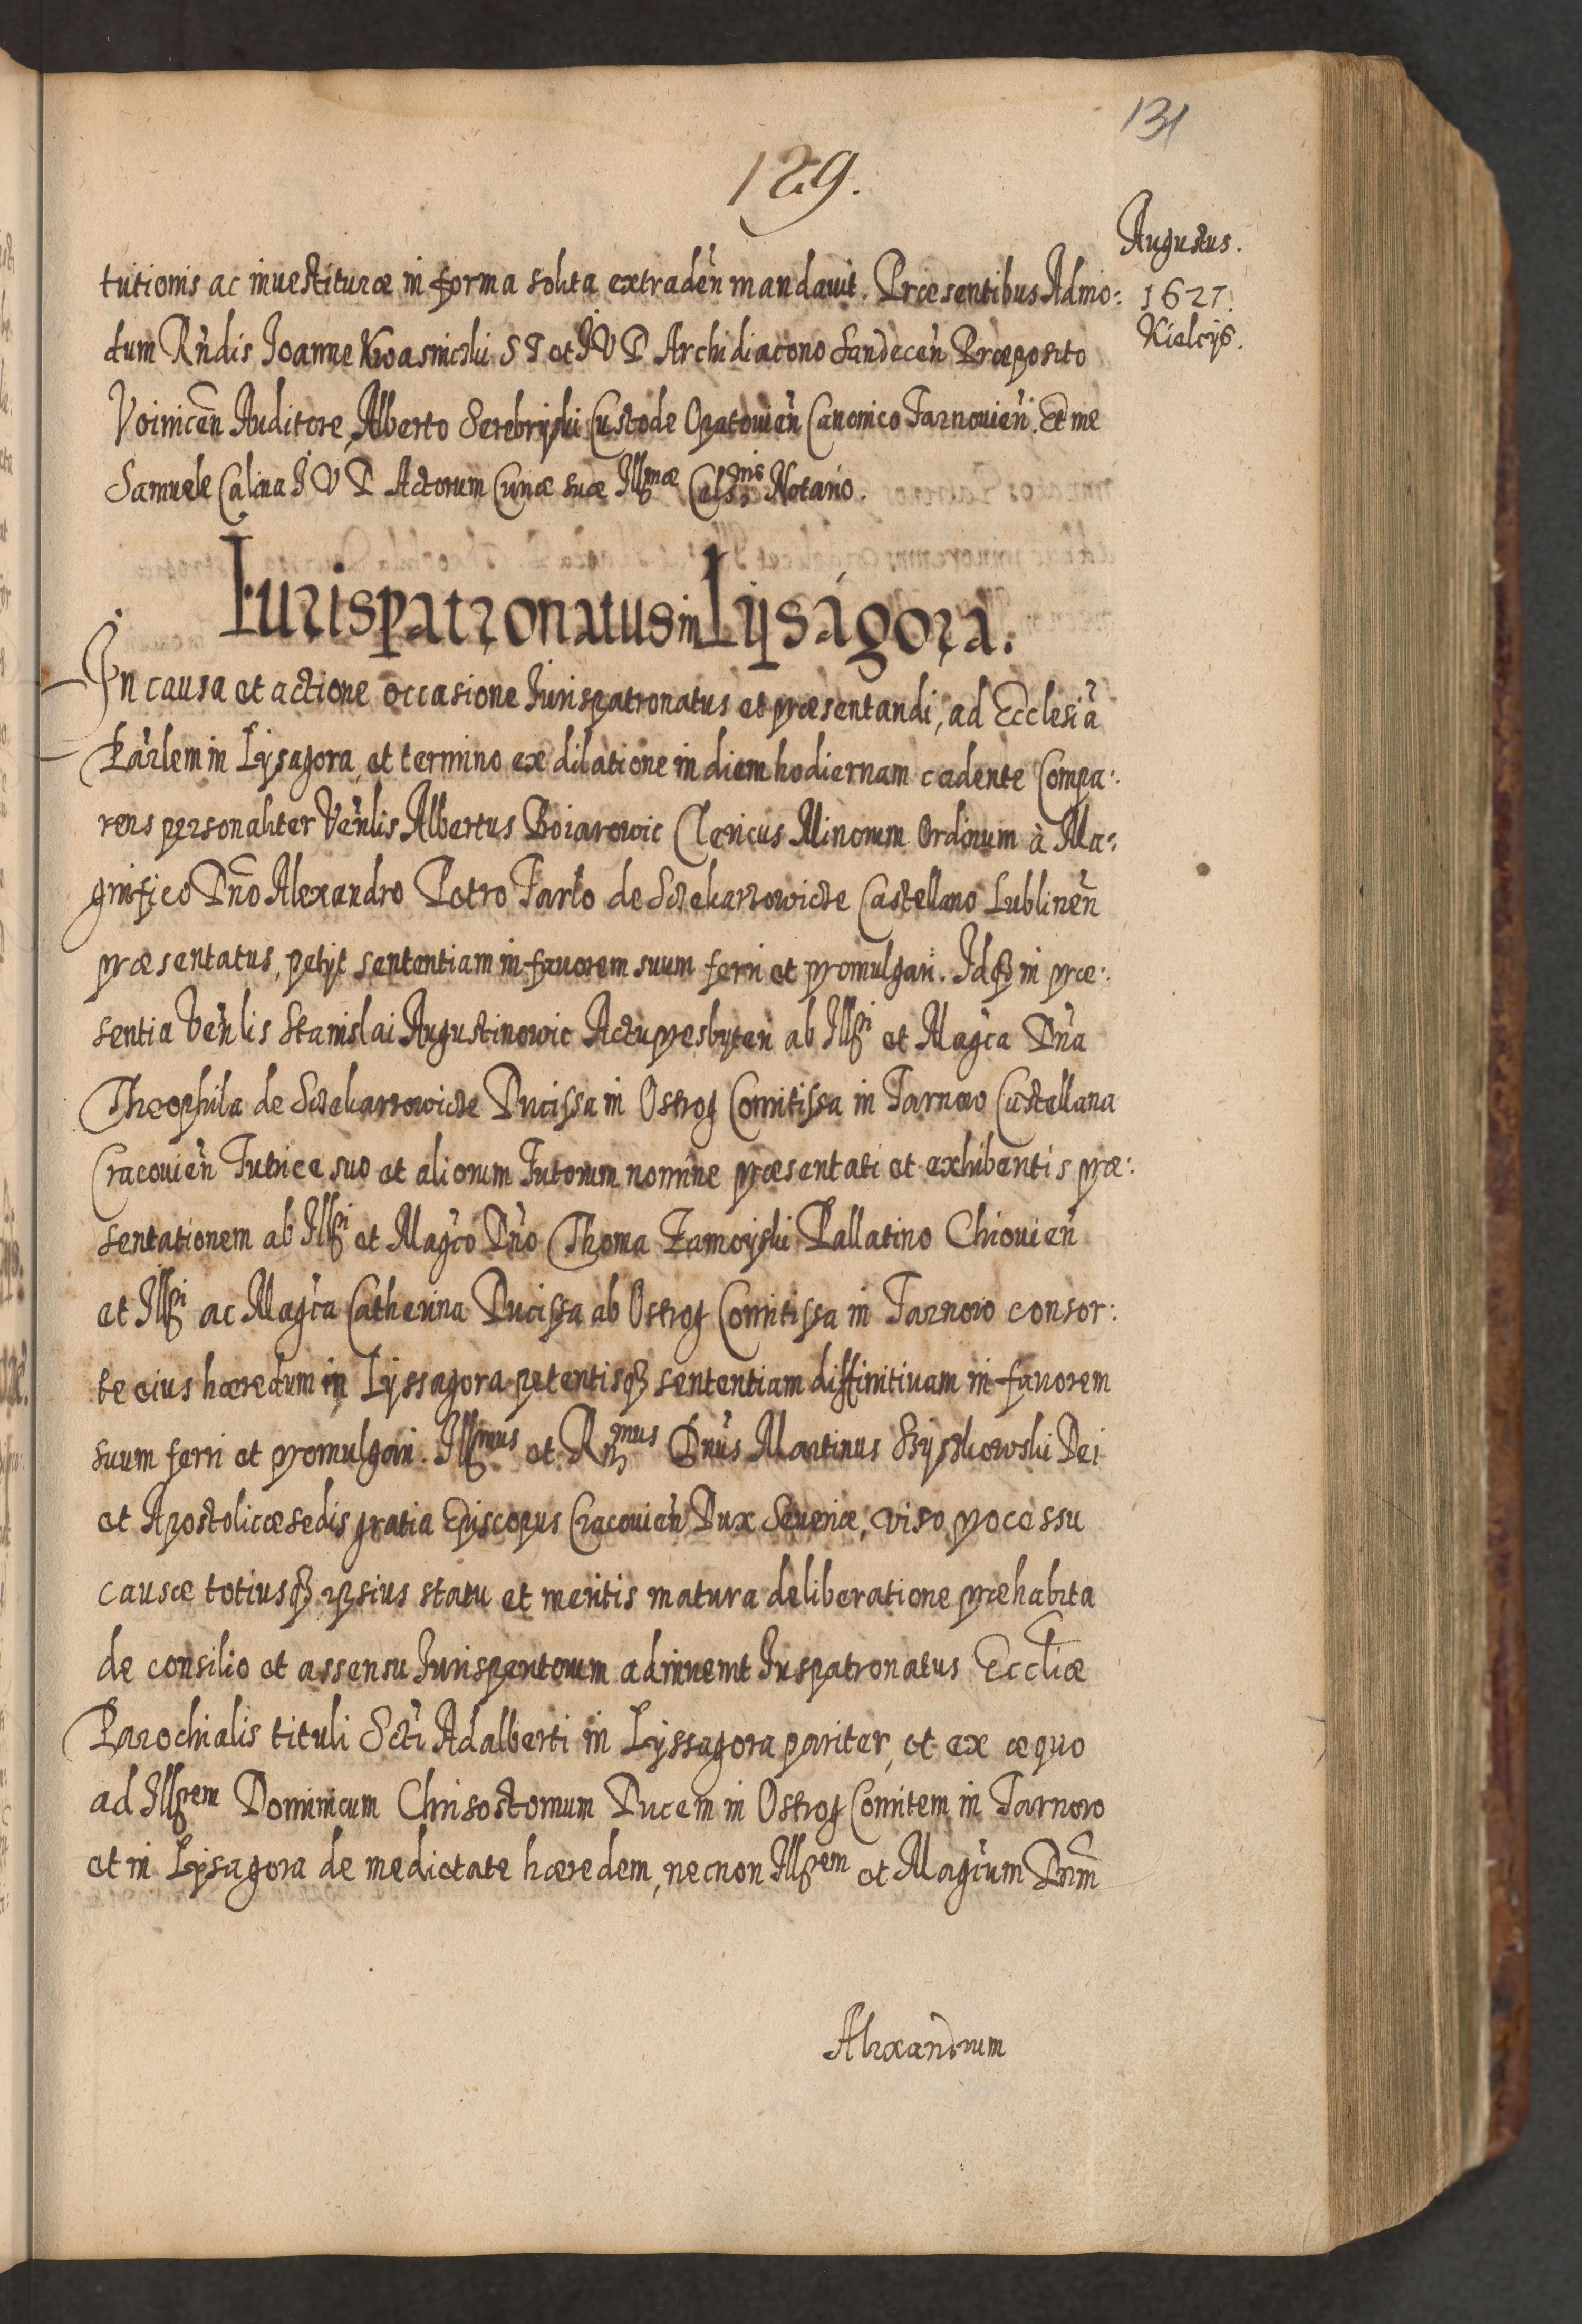 131
129.
Augustus.
1627.
Kielcijs.
tutionis ac inuestituræ in forma solita extradeñ mandauit. Præsentibus Admo:
dum Rñdis Joanne Kwasnicki S T et J V D Archidiacono Sandeceñ Præposito
Voiniceñ Auditore, Alberto Serebryski Custode Opatouieñ Canonico Tarnouieñ. Et me
Samuele Calina J V D Actorum Curiæ suæ Illmæ Celsnis Notario.
Iurispatronatus in Lysagora.
In causa et actione occasione Jurispatronatus et præsentandi, ad Ecclesiã
Parlem in Lysagora, et termino ex dilatione in diem hodiernam cadente Compa:
rens personaliter Veñlis Albertus Boiarowic Clericus Minorum Ordinum à Ma:
gnifico Dño Alexandro Petro Tarło de Sczekarzowicze Castellano Lublineñ
præsentatus, petijt sententiam in fauorem suum ferri et promulgari. Idqȝ in præ:
sentia Veñlis Stanislai Augustinowic Actupresbyteri ab Illri et Magca Dña
Theophila de Sczekarzowicze Ducissa in Ostrog Comitissa in Tarnow Castellana
Cracouieñ Tutrice suo et aliorum Tutorum nomine præsentati et exhibentis præ:
sentationem ab Illri et Magco Dño Thoma Zamoyski Pallatino Chiouieñ
et Illri ac Magca Catherina Ducissa ab Ostrog Comitissa in Tarnow consor:
te eius hæredum in Lyssagora petentisqȝ sententiam diffinitiuam in fauorem
suum ferri et promulgari. Illmus et Rmus Dñus Martinus Szyszkowski Dei
et Apostolicæ sedis gratia Episcopus Cracouieñ Dux Seueriæ, viso processu
causæ totiusqȝ ipsius statu et meritis matura deliberatione præhabita
de consilio et assensu Jurisperitorum adinuenit Juspatronatus Eccliæ
Parochialis tituli Scti Adalberti in Lyssagora pariter, et ex æquo
ad Illrem Dominicum Chrisostomum Ducem in Ostrog Comitem in Tarnow
et in Lysagora de medietate hæredem, necnon Illrem et Magcum Dñm
Alexandrum